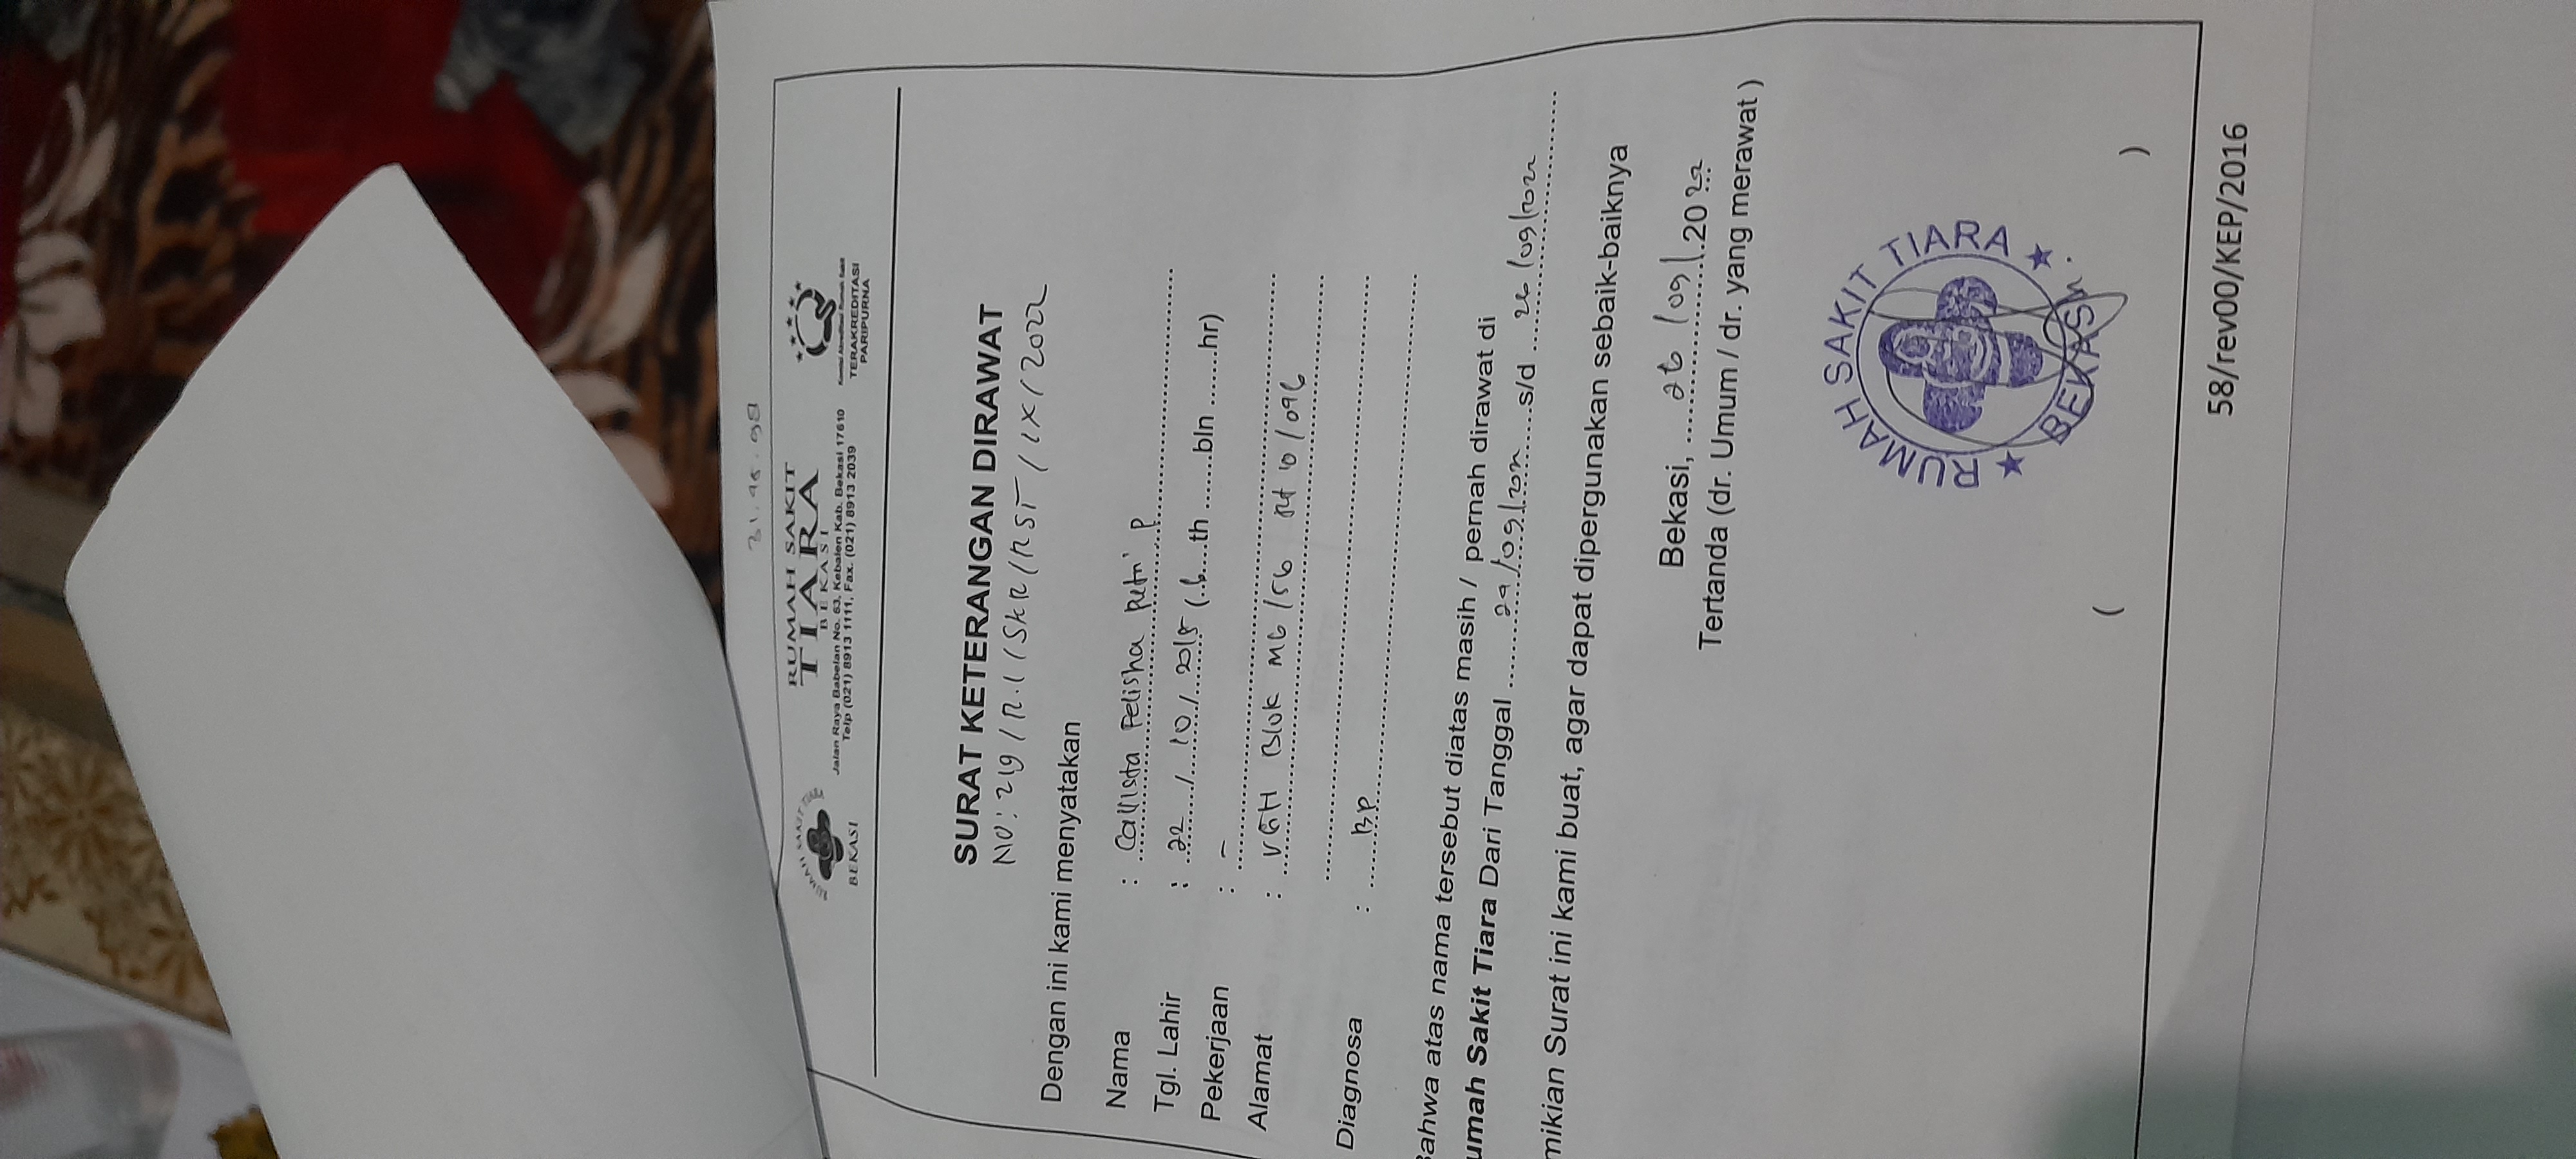 31.45.98
RUMAH SAKIT TIARA
BEKASI
RUMAH SAKIT
TIARA
BEKASI
Jalan Raya Babelan No. 63, Kebalen Kab. Bekasi 17610
Telp (021) 8913 1111, Fax. (021) 8913 2039
Komisi Akreditasi Rumah Sakit
TERAKREDITASI
PARIPURNA
SURAT KETERANGAN DIRAWAT
NO: 219/R.I/SKR/RST/IX/2022
Dengan ini kami menyatakan
Nama : Callista Felisha Putri P
Tgl. Lahir : 22 / 10 / 2015 (.6....th .......bln .......hr)
Pekerjaan : -
Alamat : VGH Blok M6/56 Rt 10/096
Diagnosa : BP
Bahwa atas nama tersebut diatas masih / pernah dirawat di
umah Sakit Tiara Dari Tanggal /09/2022 s/d 26/09/2022
mikian Surat ini kami buat, agar dapat dipergunakan sebaik-baiknya
Bekasi, 26/09/.2022
Tertanda (dr. Umum / dr. yang merawat )
RUMAH SAKIT TIARA
BEKASI
( )
58/rev00/KEP/2016